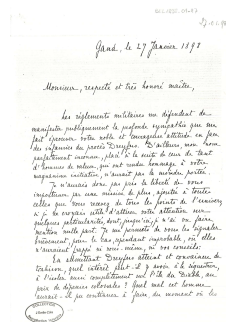 Gand, le 27 Janvier 1898
Monsieur, respecté et très honoré maître,
Les règlements militaires me défendent de
manifester publiquement la profonde sympathie que me
fait éprouver votre noble et courageuse attitude en face
des infamies du procès Dreyfus. D'ailleurs, mon nom
parfaitement inconnu, placé à la suite de ceux de tant
d'hommes de valeur, qui ont rendu hommage, à votre
magnanime initiative, n'aurait pas la moindre portée.
Je n'aurais donc pas pris la liberté de vous
importuner par une missive de plus, ajoutée à toutes
celles que vous recevez de tous les points de l'univers
si je ne croyais utile d'attirer votre attention sur
quelques particularités, dont, jusqu'ici, je n'ai vu faire
mention nulle part. Je me permets de vous les signaler
brièvement pour le cas, cependant improbable, où elles
n'auraient frappé ni vous-même, ni vos conseils.
En admettant Dreyfus atteint et convaincu de
trahison, quel intérêt peut-il y avoir à la signature,
à l'isoler aussi complètement sur l'île du Diable, au
prix de dépenses colossales? Quel mal cet homme
aurait-il pu continuer à faire du moment où les